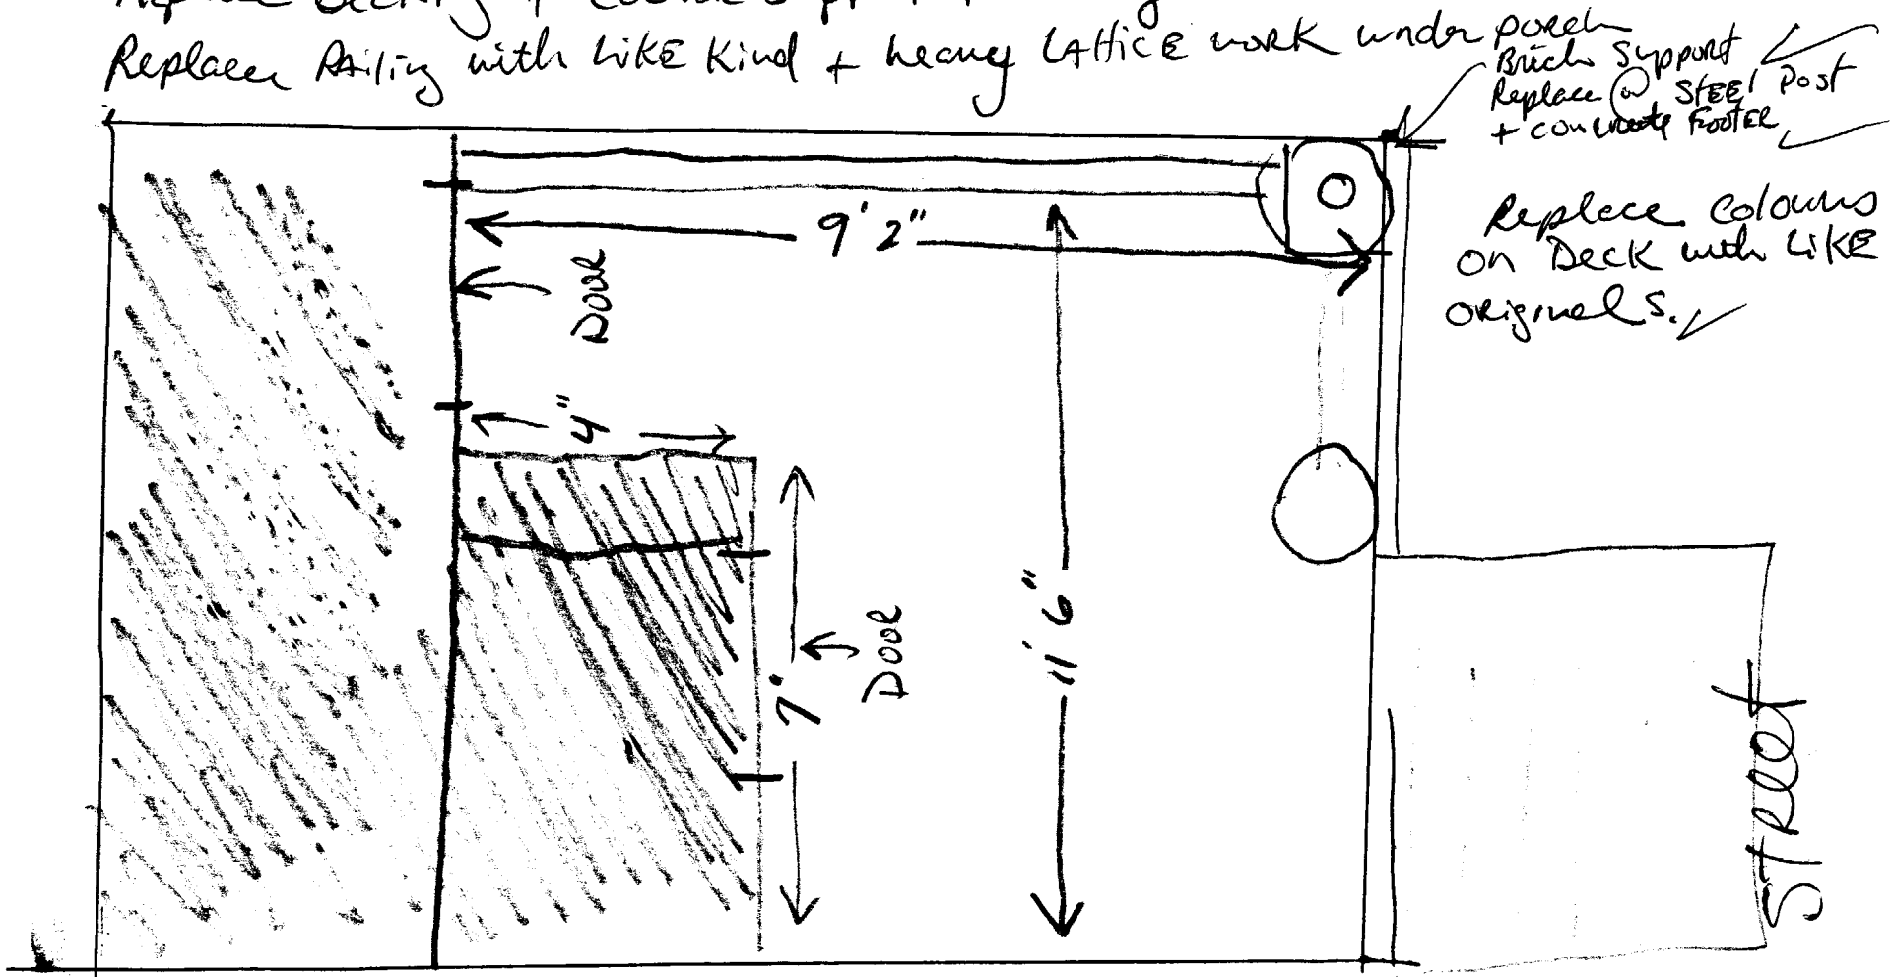 Replace Railing with LIKE Kind + heavy LATTICE work under porch
Brick Support
Replace @ STEEL Post
+ concreate FOOTER
Replace Colouns
on Deck with LIKE
originals.
9' 2"
Door
4"
7'
Door
11' 6"
Street